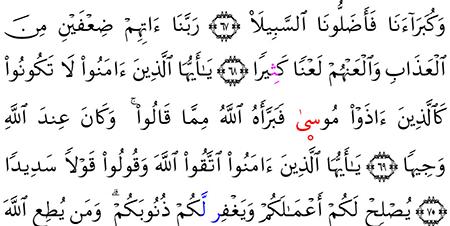 وَكُبَرَآءَنَا فَأَضَلُّونَا ٱلسَّبِيلَا۠ ۝٦٧ رَبَّنَآ ءَاتِهِمْ ضِعْفَيْنِ مِنَ
ٱلْعَذَابِ وَٱلْعَنْهُمْ لَعْنًا كَثِيرًا ۝٦٨ يَـٰٓأَيُّهَا ٱلَّذِينَ ءَامَنُوا۟ لَا تَكُونُوا۟
كَٱلَّذِينَ ءَاذَوْا۟ مُوسَىٰ فَبَرَّأَهُ ٱللَّهُ مِمَّا قَالُوا۟ ۚ وَكَانَ عِندَ ٱللَّهِ
وَجِيهًا ۝٦٩ يَـٰٓأَيُّهَا ٱلَّذِينَ ءَامَنُوا۟ ٱتَّقُوا۟ ٱللَّهَ وَقُولُوا۟ قَوْلًا سَدِيدًا
۝٧٠ يُصْلِحْ لَكُمْ أَعْمَـٰلَكُمْ وَيَغْفِر لَّكُمْ ذُنُوبَكُمْ ۗ وَمَن يُطِعِ ٱللَّهَ